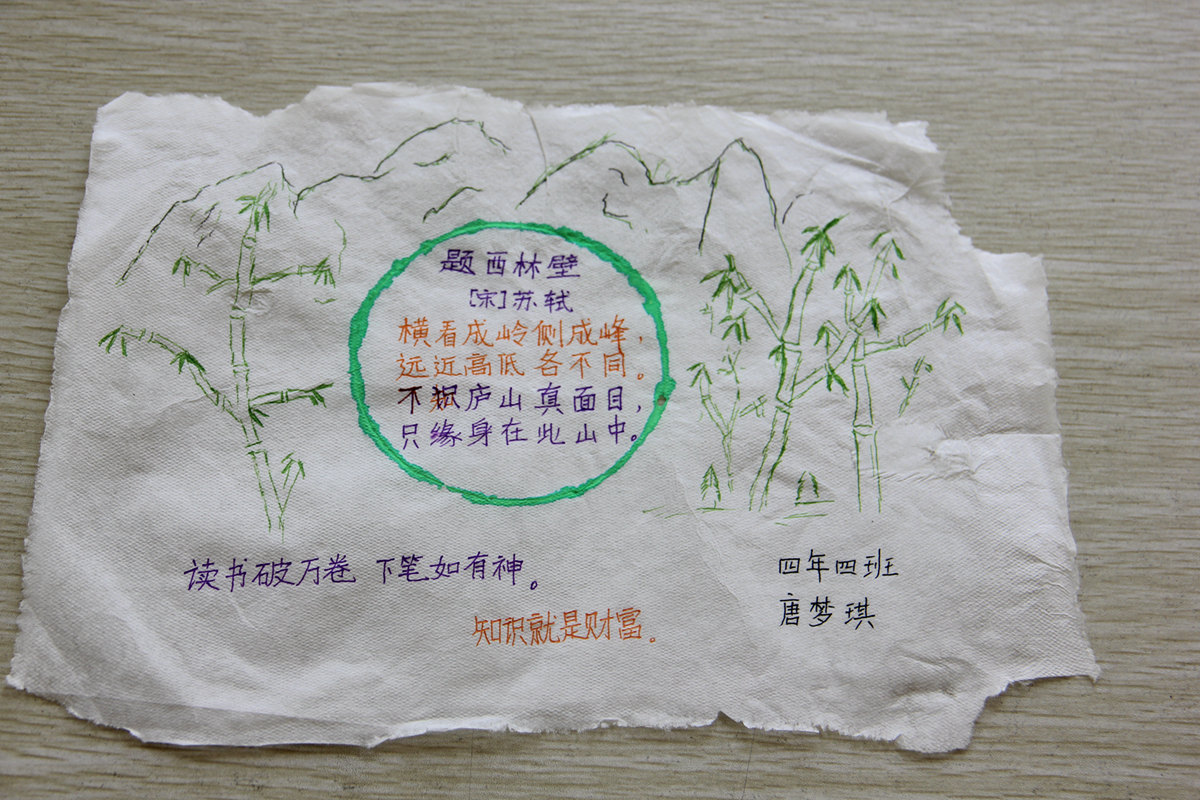 题西林壁
[宋]苏轼
横看成岭侧成峰，
远近高低各不同。
不识庐山真面目，
只缘身在此山中。
读书破万卷 下笔如有神。
知识就是财富。
四年四班
唐梦琪